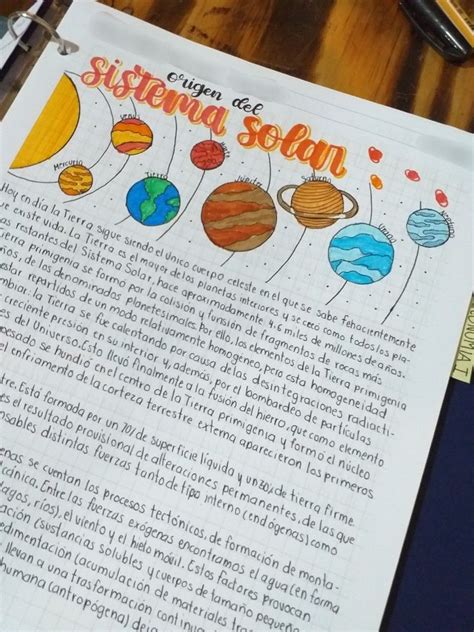 Origen del
sistema solar
Mercurio
Venus
Tierra
Marte
Júpiter
Saturno
Urano
Neptuno
Hoy en día la Tierra sigue siendo el único cuerpo celeste en el que se sabe fehacientemente
existe vida. La Tierra es el mayor de los planetas interiores y se creó como todos los pla-
restantes del Sistema Solar, hace aproximadamente 4.6 miles de millones de años.
primigenia se formó por la colisión y funsión de fragmentos de rocas más
de los denominados planetesimales. Por ello, los elementos de la Tierra primigenia
estar repartidos de un modo relativamente homogéneo, pero esta homogeneidad
cambiar. la Tierra se fue calentando por causa de las desintegraciones radiacti-
creciente presión en su interior y, además, por el bombardeo de partículas
del Universo. Esto llevó finalmente a la fusión del hierro, que como elemento
pesado se hundió en el centro de la Tierra primigenia y formó el núcleo
el enfriamento de la corteza terrestre externa aparecieron los primeros
Está formada por un 70% de superficie líquida y un 30% de tierra firme
es el resultado provisional de alteraciones permanentes, de las que
distintas fuerzas tanto de tipo interno (endógenas) como
se cuentan los procesos tectónicos, de formación de monta-
Entre las fuerzas exógenas encontramos el agua (en forma
lagos, ríos), el viento y el hielo móvil. Estos factores provocan
(sustancias solubles y cuerpos de tamaño pequeño
sedimentación (acumulación de materiales
llevan a una trasformación continua
humana (antropógena)